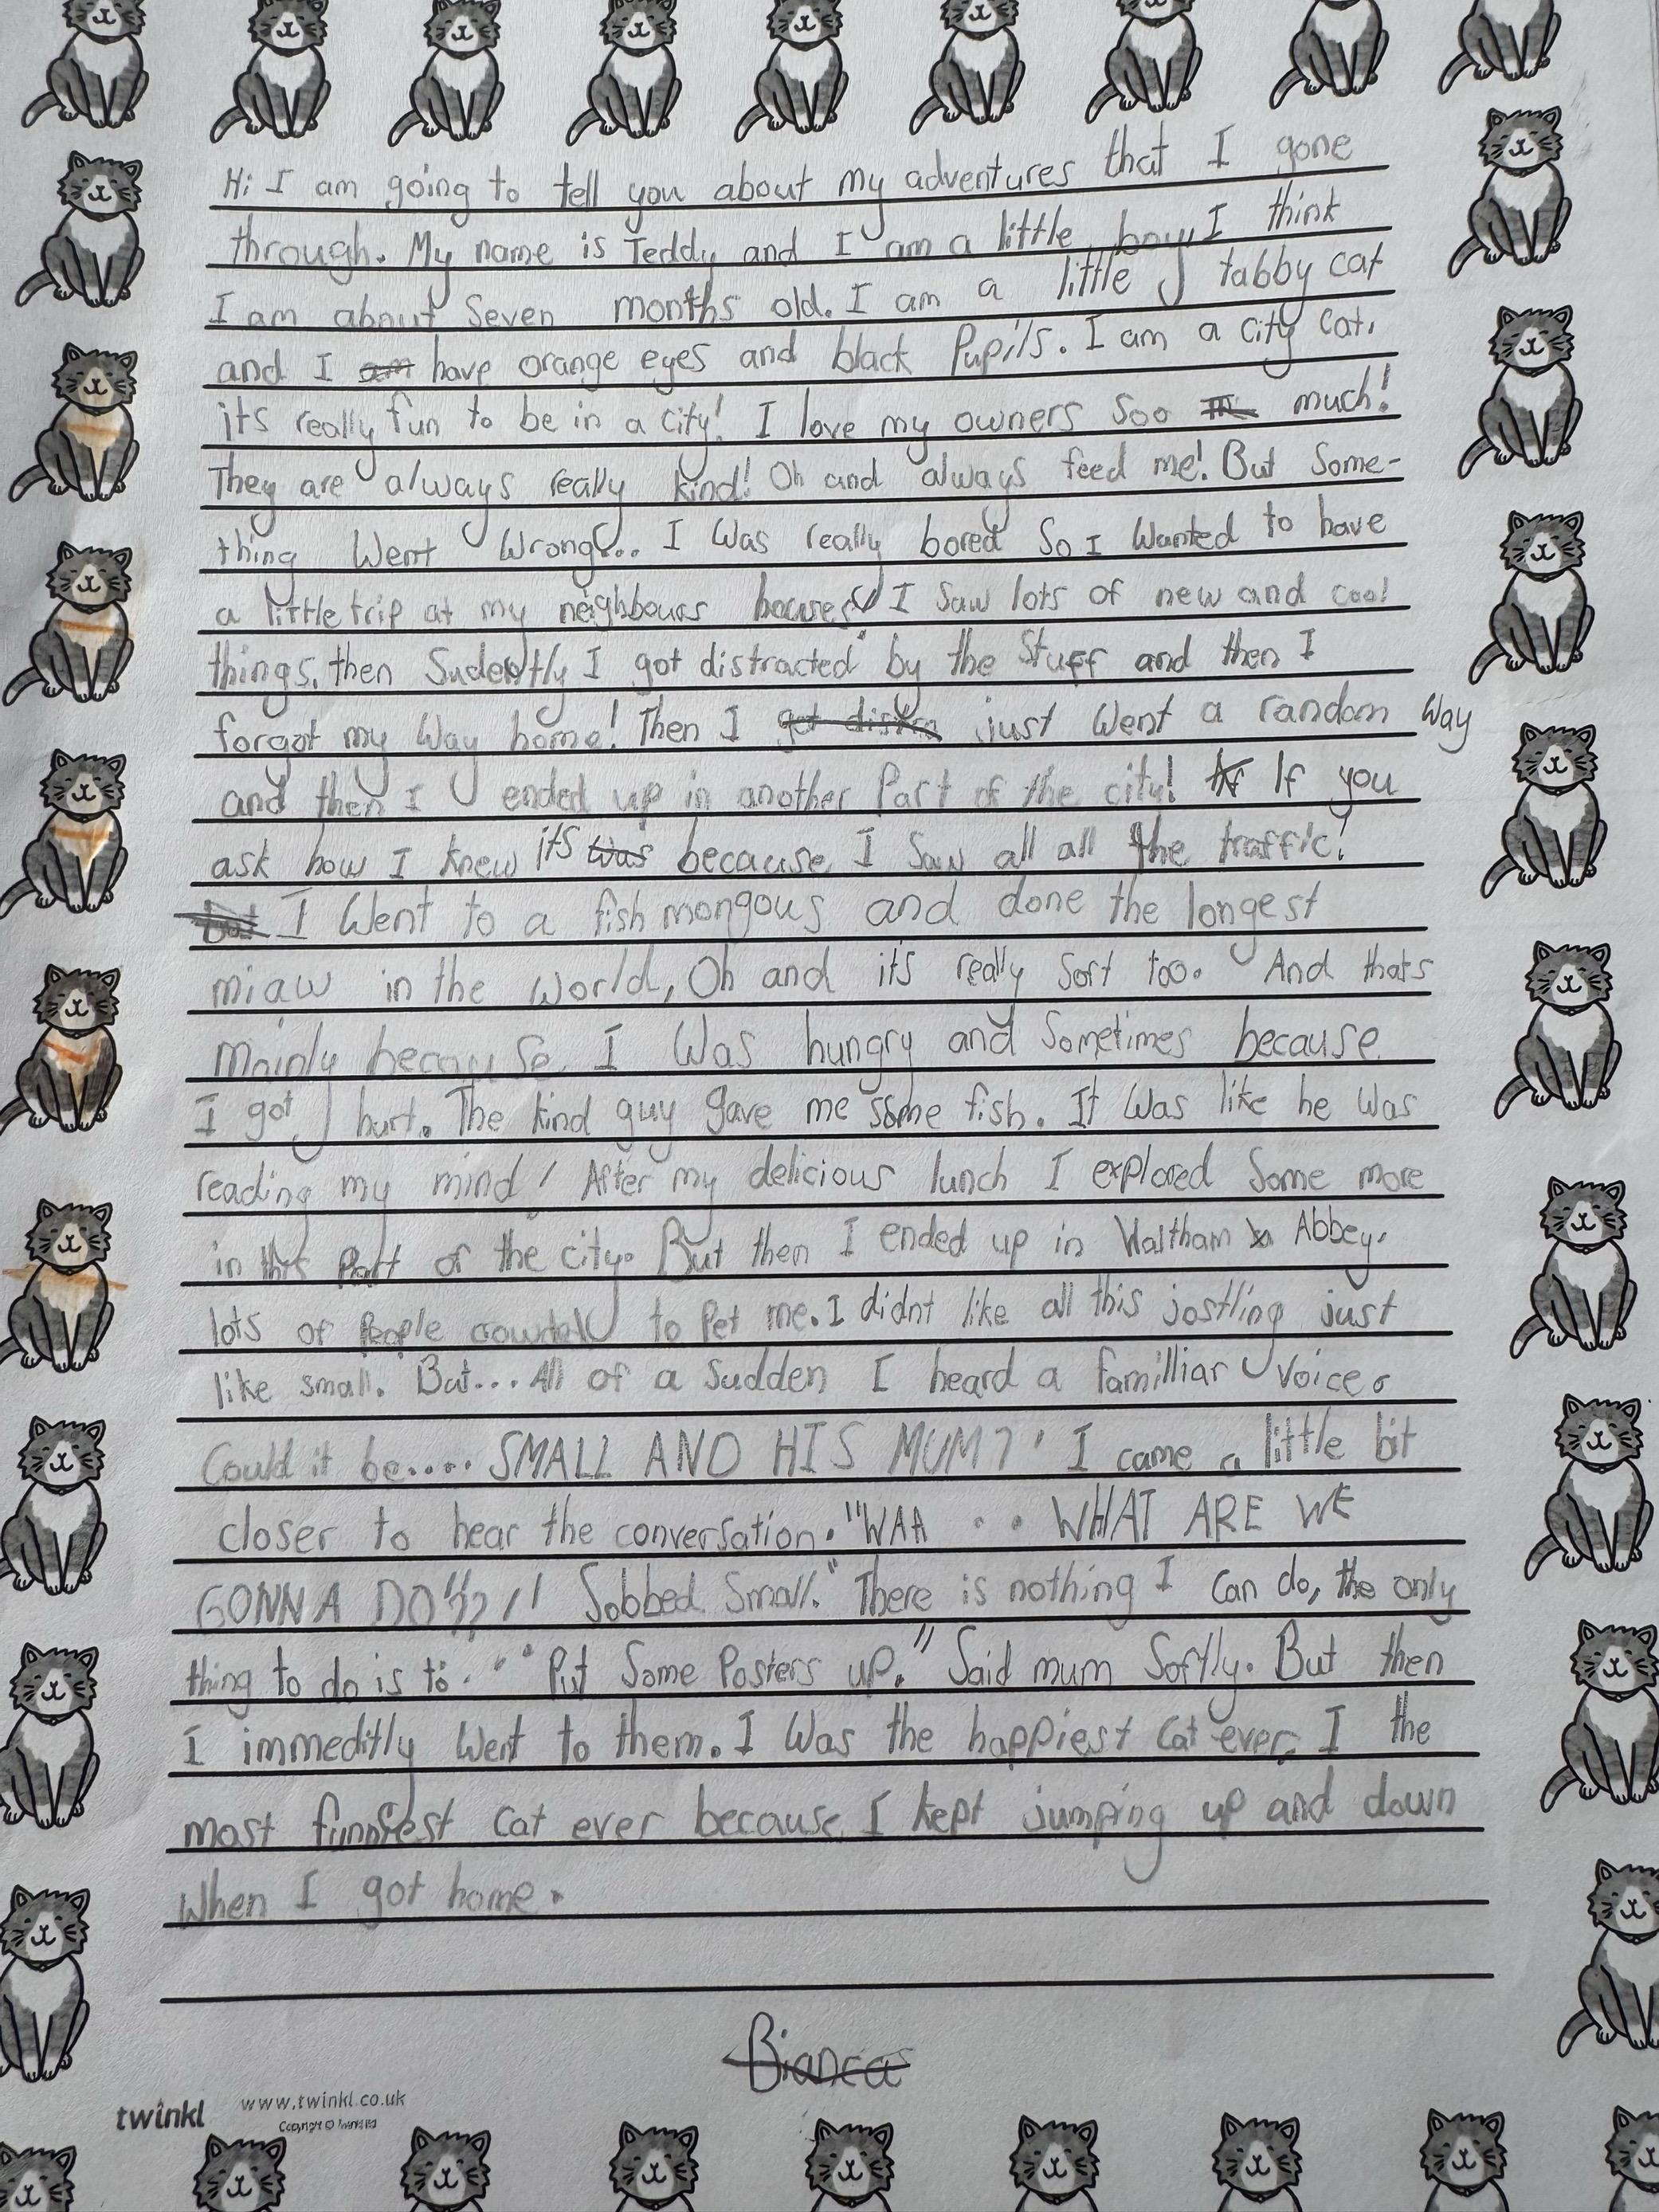 Hi I am going to tell you about my adventures that I gone
through. My name is Teddy and I am a little boy, I think
I am about Seven months old. I am a little tabby cat
and I am have orange eyes and black Pupils. I am a city cat,
its really fun to be in a city! I love my owners Soo much!
They are always really kind! Oh and always feed me! But Some-
thing Went Wrong... I Was really bored So I Wanted to have
a little trip at my neighbours I Saw lots of new and cool
things, then I got distracted by the Stuff and then I
forgot my Way home! Then I got distra just Went a random Way
and then I ended up in another Part of the city! If you
ask how I knew its was because I Saw all all the traffic!
but I Went to a fish mongous and done the longest
miaw in the World, Oh and its really Sort too. And thats
Mainly because I Was hungry and Sometimes because
I got hurt. The kind guy gave me some fish. It Was like he Was
reading my mind! After my delicious lunch I explored Some more
in this Part of the city. But then I ended up in Waltham Abbey.
lots of People to Pet me. I didnt like all this jostling just
like small. But... All of a Sudden I heard a familliar Voice.
Could it be.... SMALL AND HIS MUM?! I came a little bit
closer to hear the conversation. "WAA .. WHAT ARE WE
GONNA DO"??!! Sobbed Small. "There is nothing I can do, the only
thing to do is to... Put Some Posters up." Said mum Softly. But then
I immeditly Went to them. I Was the happiest Cat ever. I the
most funniest Cat ever because I kept jumping up and down
When I got home.
Bianca
twinkl www.twinkl.co.uk